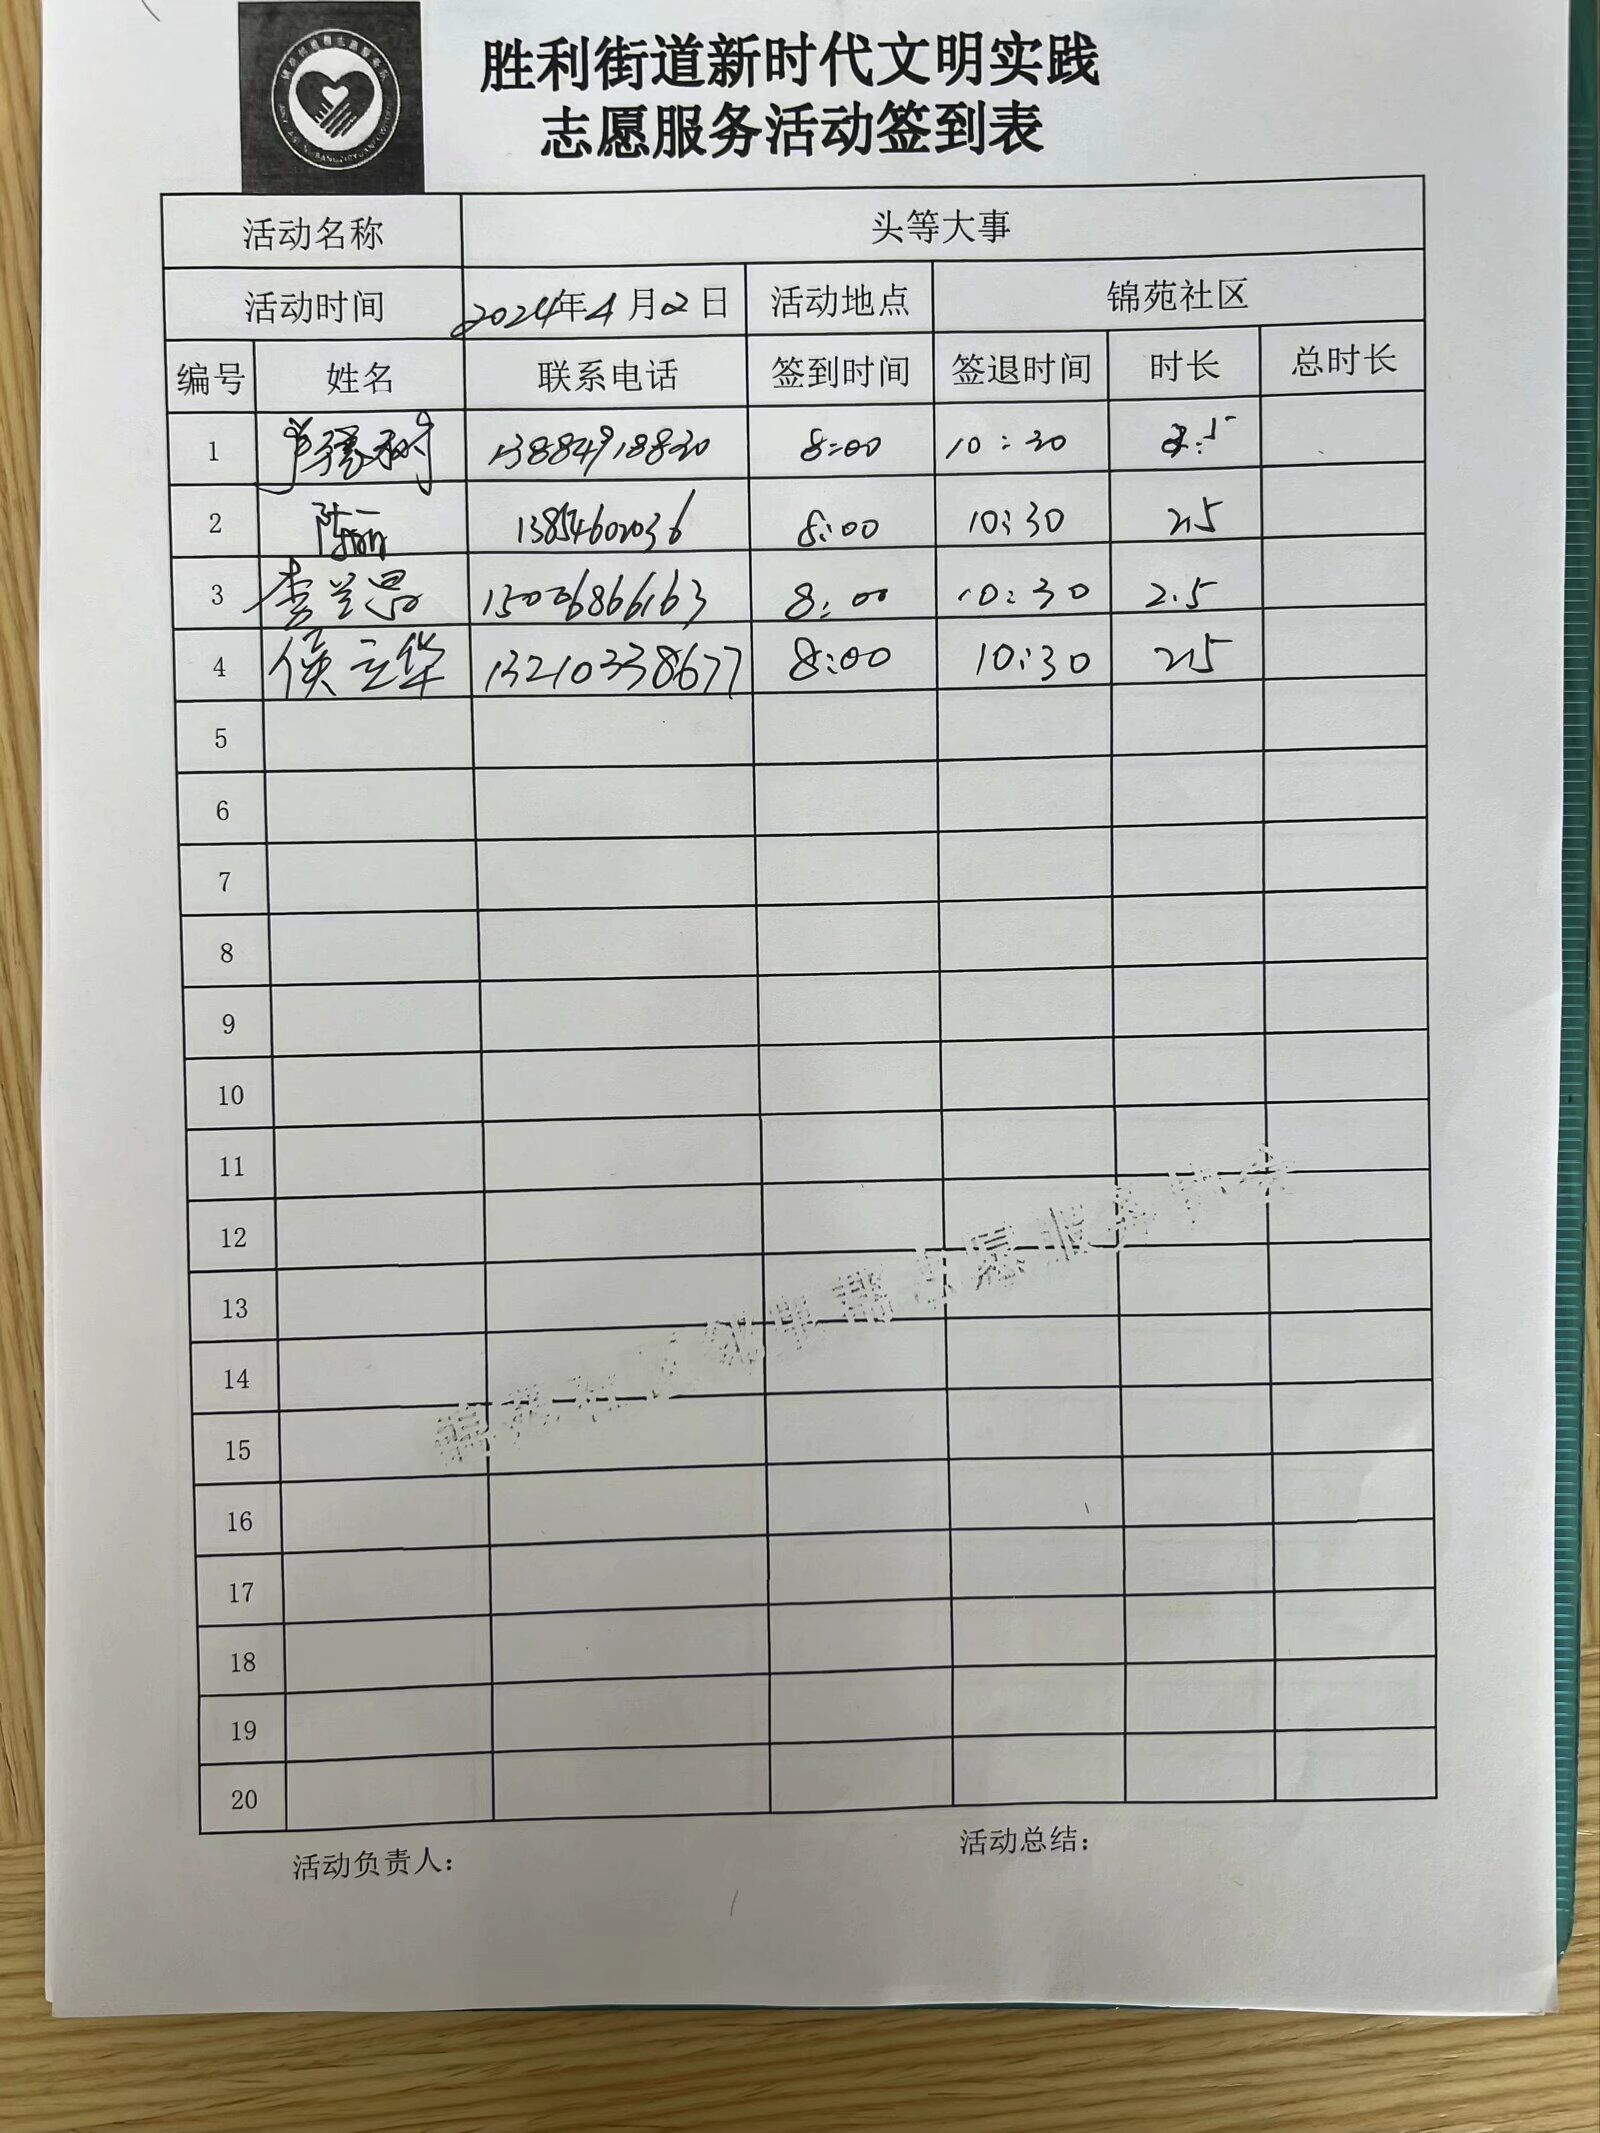 胜利街道新时代文明实践
志愿服务活动签到表
活动名称 头等大事
活动时间 2024年4月2日 活动地点 锦苑社区
编号 姓名 联系电话 签到时间 签退时间 时长 总时长
1 13884918830 8:00 10:30 2.5
2 陈丽 13854602036 8:00 10:30 2.5
3 李兰 15006866163 8:00 10:30 2.5
4 侯立华 13210338677 8:00 10:30 2.5
5
6
7
8
9
10
11
12
13
14
15
16
17
18
19
20
活动负责人： 活动总结：